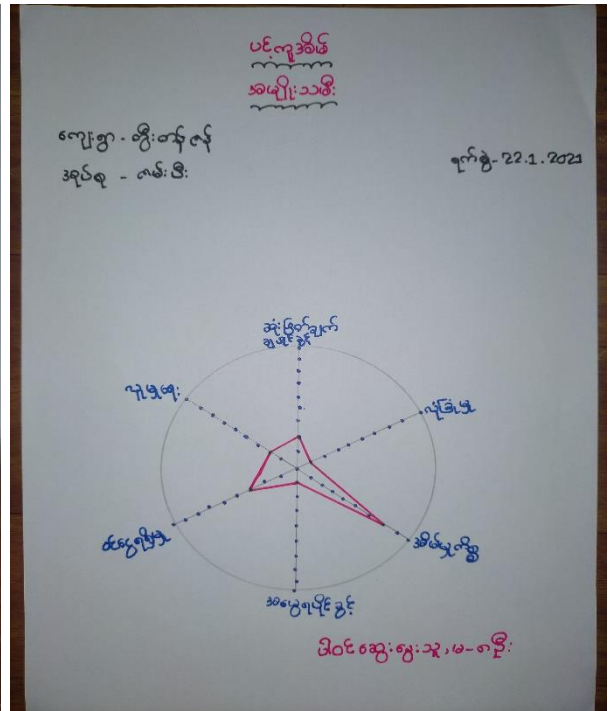 ပင့်ကူအိမ်
အမျိုးသမီး
ကျေးရွာ - တွီးတန်ဇန်
အုပ်စု - ဇမ်းမီး
ရက်စွဲ - 22.1.2021
ဆုံးဖြတ်ချက်
ချပိုင်ခွင့်
လူမှုရေး
လုံခြုံမှု
ဝင်ငွေရရှိမှု
အိမ်မှုကိစ္စ
အမွေရပိုင်ခွင့်
ပါဝင်ဆွေးနွေးသူ၊ မ - ၈ဦး